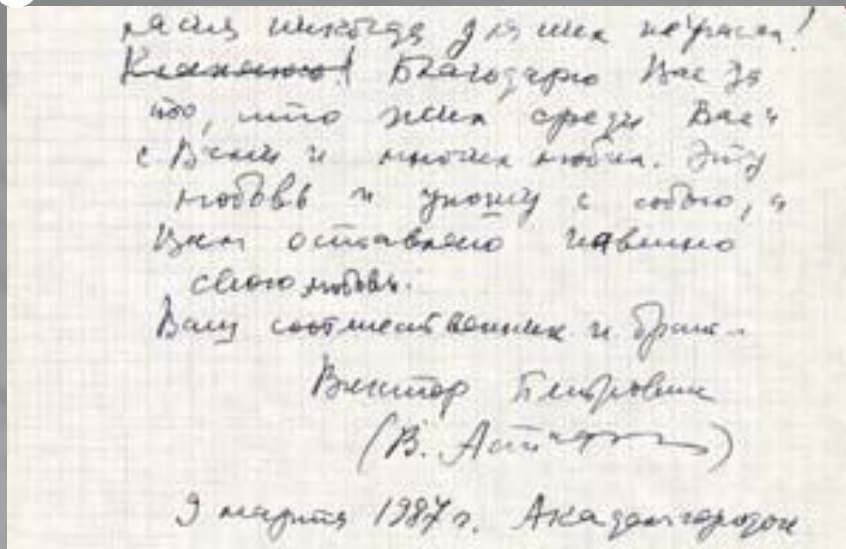 никогда для них не
Кланяюсь! Благодарю Вас за
то, что жил среди Вас и
с Вами и многих любил. Эту
любовь и уношу с собою, а
Вам оставляю навечно
свою любовь.
Ваш соотечественник и брат
Виктор Петрович
(В. Астафьев)
9 марта 1987 г. Академгородок